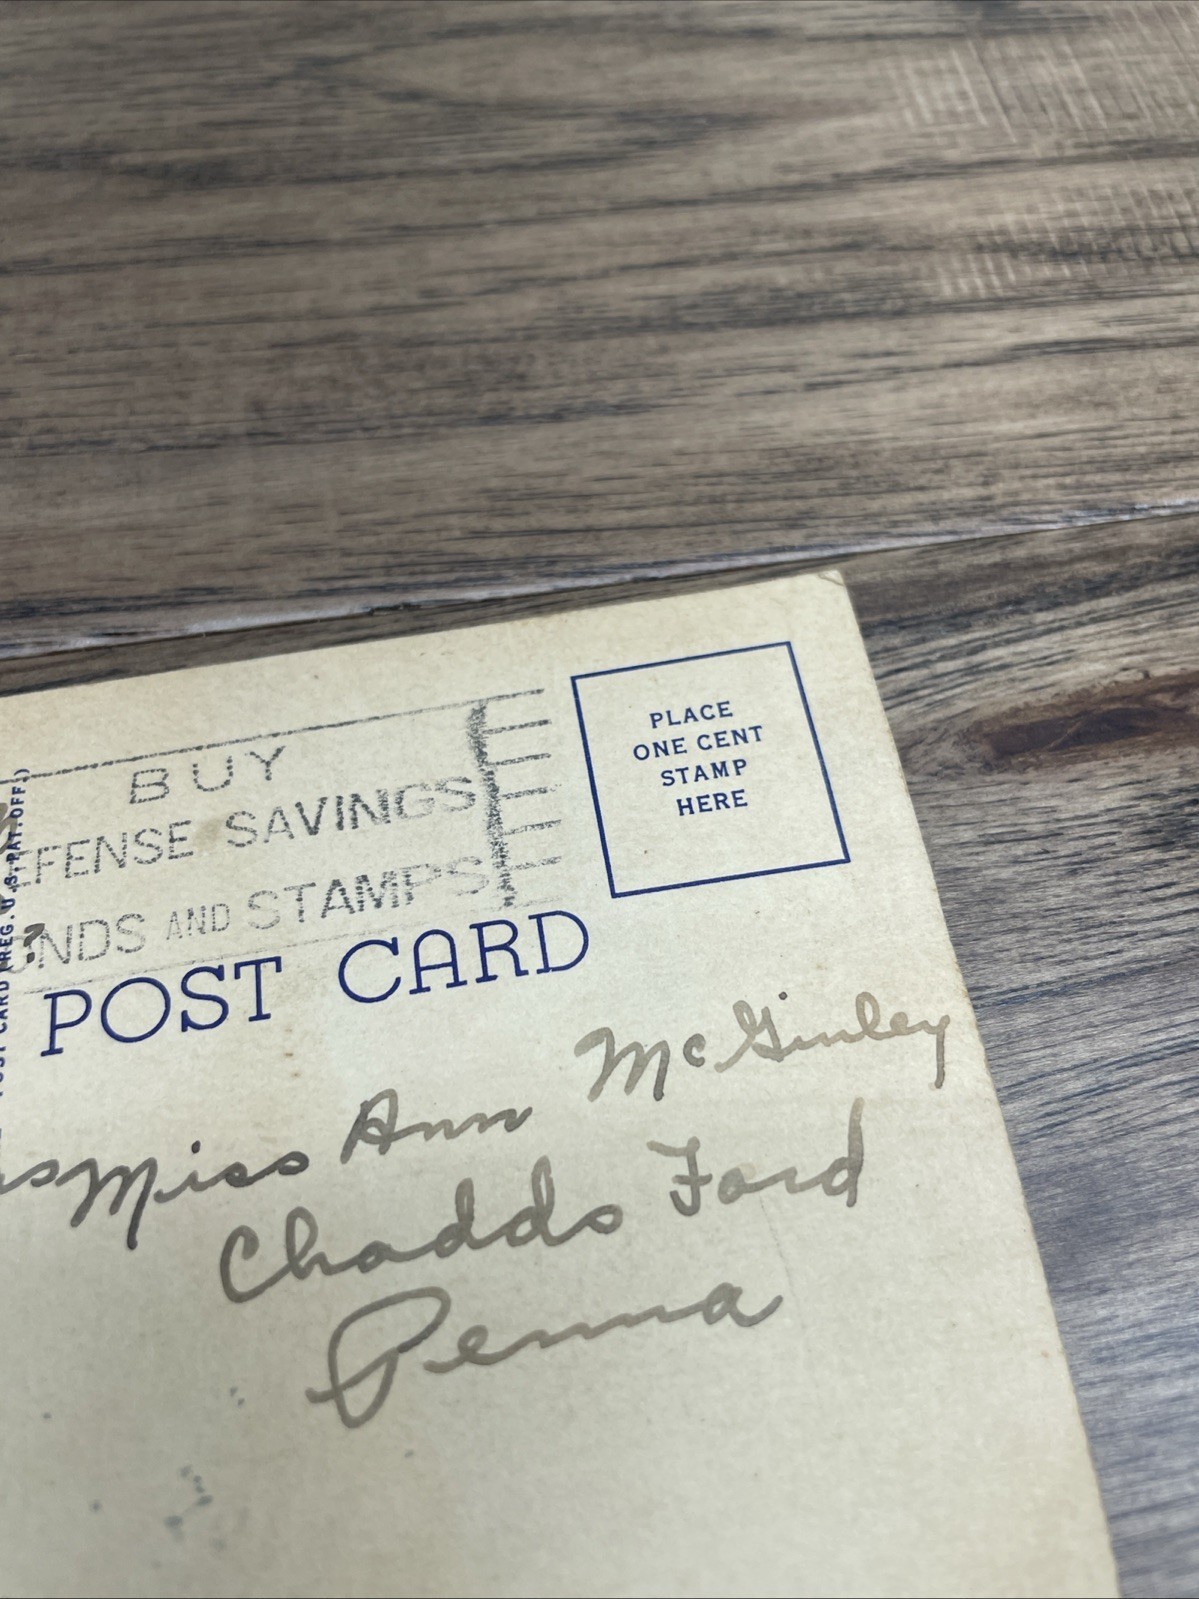 BUY
EFENSE SAVINGS
ONDS AND STAMPS
PLACE
ONE CENT
STAMP
HERE
POST CARD
POST CARD (REG. U.S. PAT. OFF.)
Miss Ann McGinley
Chadds Ford
Penna